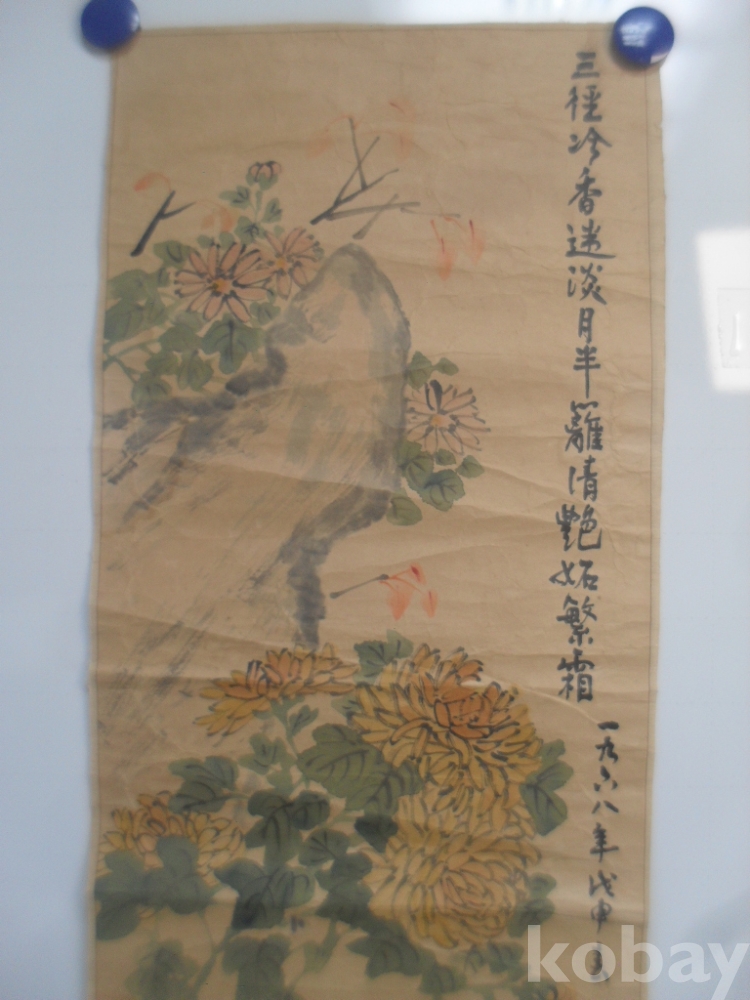 三徑冷香迷淡月半籬清艷妬繁霜
一九六八年戊申
kobay